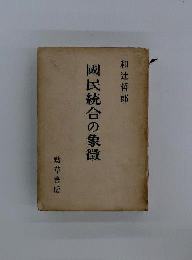 和辻哲郎
國民統合の象徴
勁草書房